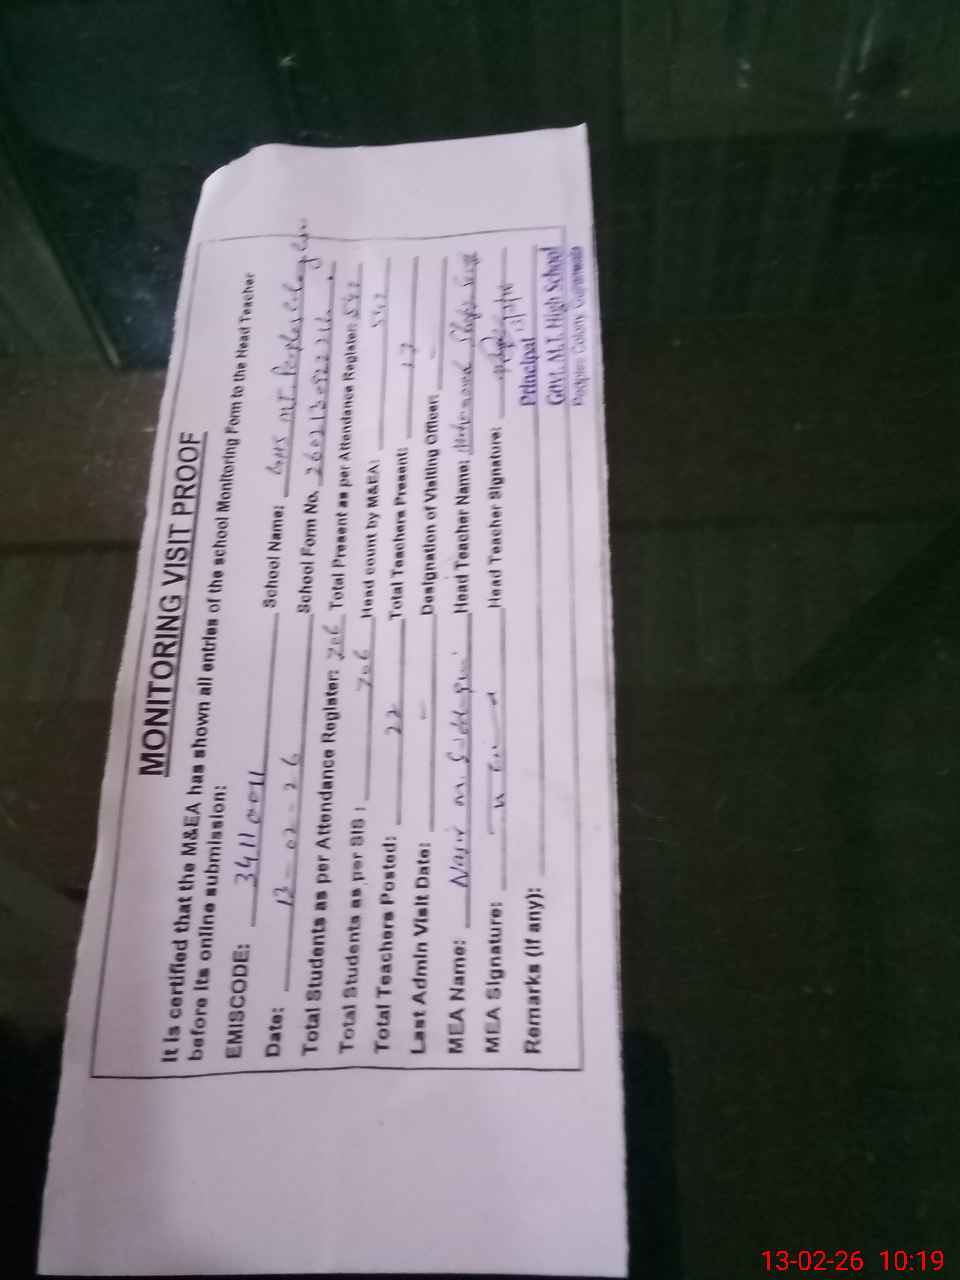 MONITORING VISIT PROOF
It is certified that the M&EA has shown all entries of the school Monitoring Form to the Head Teacher
before its online submission:
EMISCODE: 34110011 School Name: GHS MT Peoples Colony
Date: 13-02-26 School Form No.
Total Students as per Attendance Register: 706 Total Present as per Attendance Register: 542
Total Students as per SIS: 706 Head count by M&EA: 542
Total Teachers Posted: 22 Total Teachers Present: 17
Last Admin Visit Date: - Designation of Visiting Officer: -
MEA Name: Nasir M. Siddiqui Head Teacher Name: Muhammad
MEA Signature: Head Teacher Signature:
Remarks (if any):
Principal 13/2/26
Govt. M.T. High School
Peoples Colony Gujranwala
13-02-26 10:19